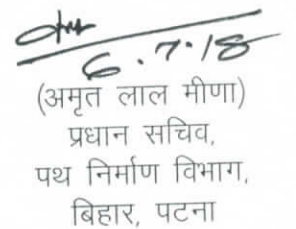 6.7.18
(अमृत लाल मीणा)
प्रधान सचिव,
पथ निर्माण विभाग,
बिहार, पटना